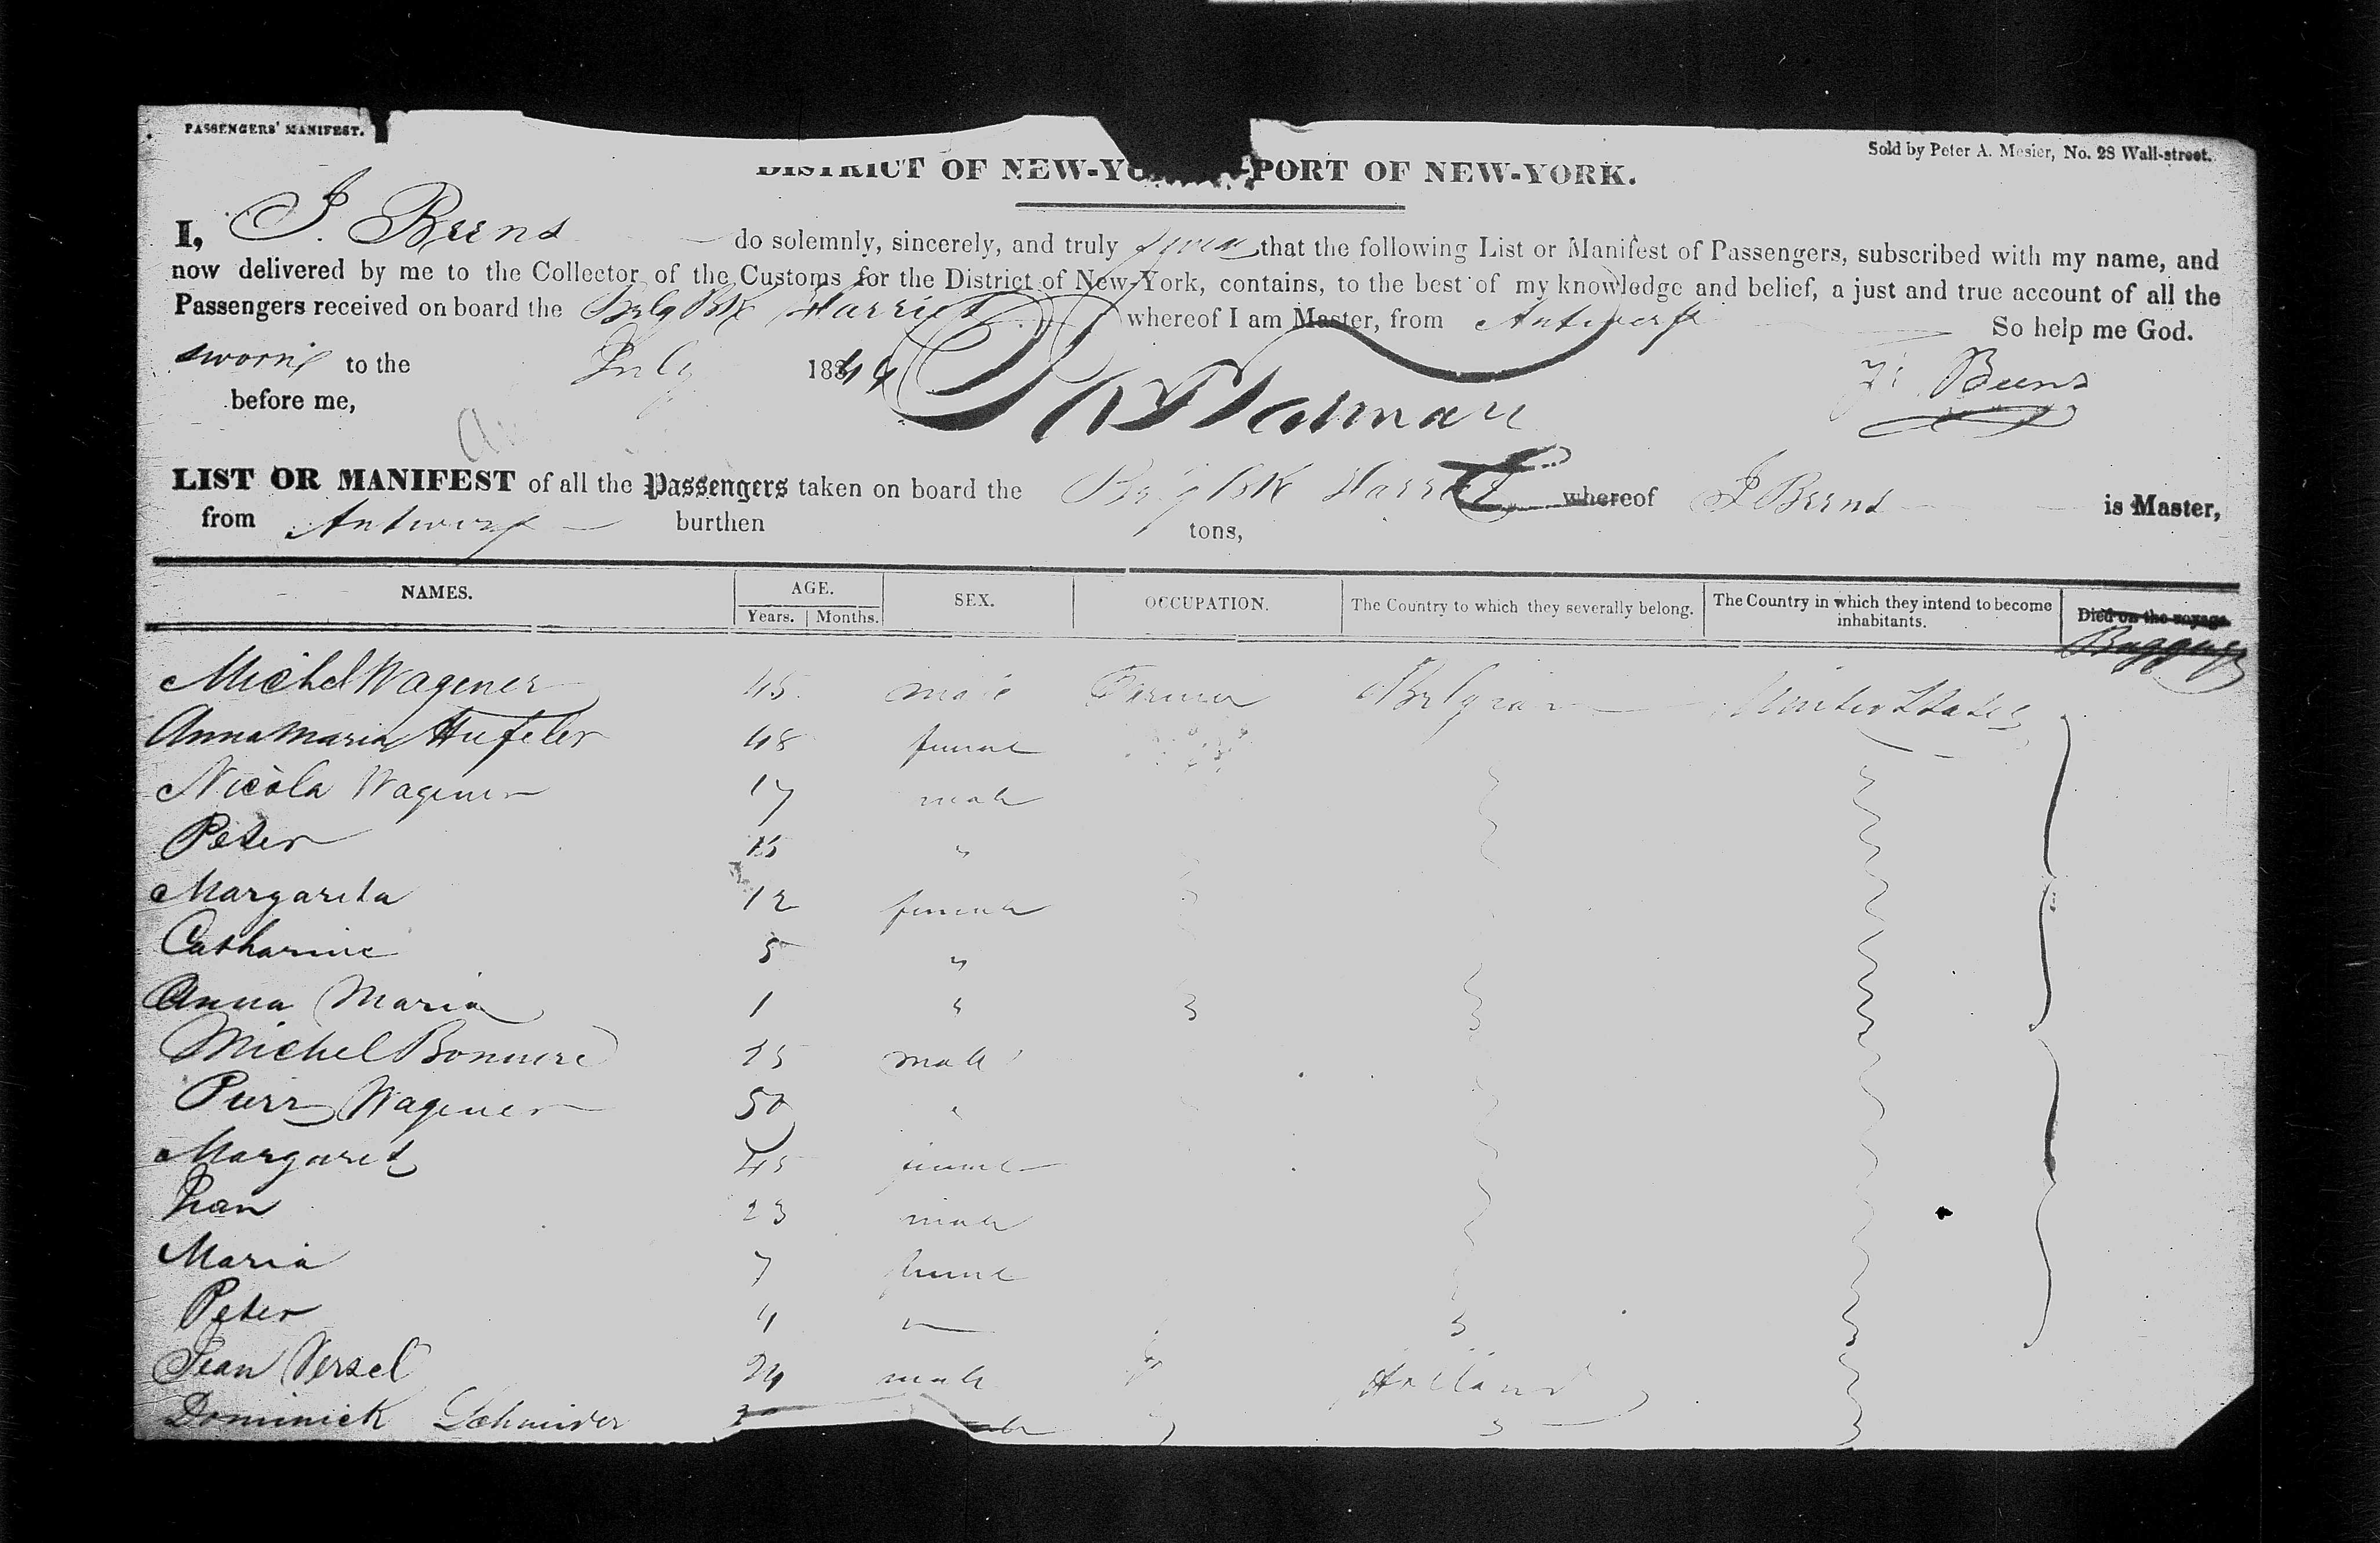 PASSENGERS' MANIFEST.
Sold by Peter A. Mesier, No. 28 Wall-street.
DISTRICT OF NEW-YO PORT OF NEW-YORK.
I, J. Beens do solemnly, sincerely, and truly swear that the following List or Manifest of Passengers, subscribed with my name, and
now delivered by me to the Collector of the Customs for the District of New-York, contains, to the best of my knowledge and belief, a just and true account of all the
Passengers received on board the Belg Bk Harriet whereof I am Master, from Antwerp So help me God.
sworn to the July 1844 Beens
before me,
LIST OR MANIFEST of all the Passengers taken on board the Belg Bk Harriet whereof J Beens is Master,
from Antwerp burthen tons,
NAMES. AGE. Years. Months. SEX. OCCUPATION. The Country to which they severally belong. The Country in which they intend to become inhabitants. Died on the voyage.
Baggage
Michel Wagener 45 male Farmer Belgian United States
Anna Maria 48 female
Nicola Wagener 17 male
Peter 15 "
Margareta 12 female
Catharine 5 "
Anna Maria 1 "
Michel 25 male
Pierre Wagener 50 "
Margaret 45 female
Jean 23 male
Maria 7 female
Peter 4
Jean Versel 24 male Holland
Dominick Schnider